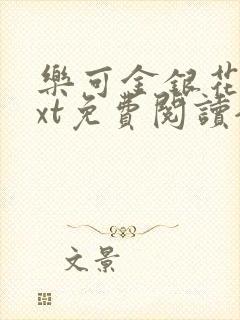 樂可金銀花
xt免費閱讀
文景